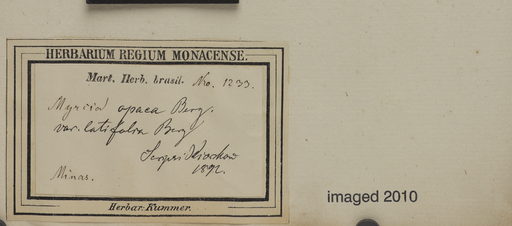 HERBARIUM REGIUM MONACENSE.
Mart. Herb. brasil. No. 1233.
Myrcia opaca Berg.
var. latifolia Berg
Scripsi Kiaerskou
1892.
Minas.
Herbar. Kummer.
imaged 2010